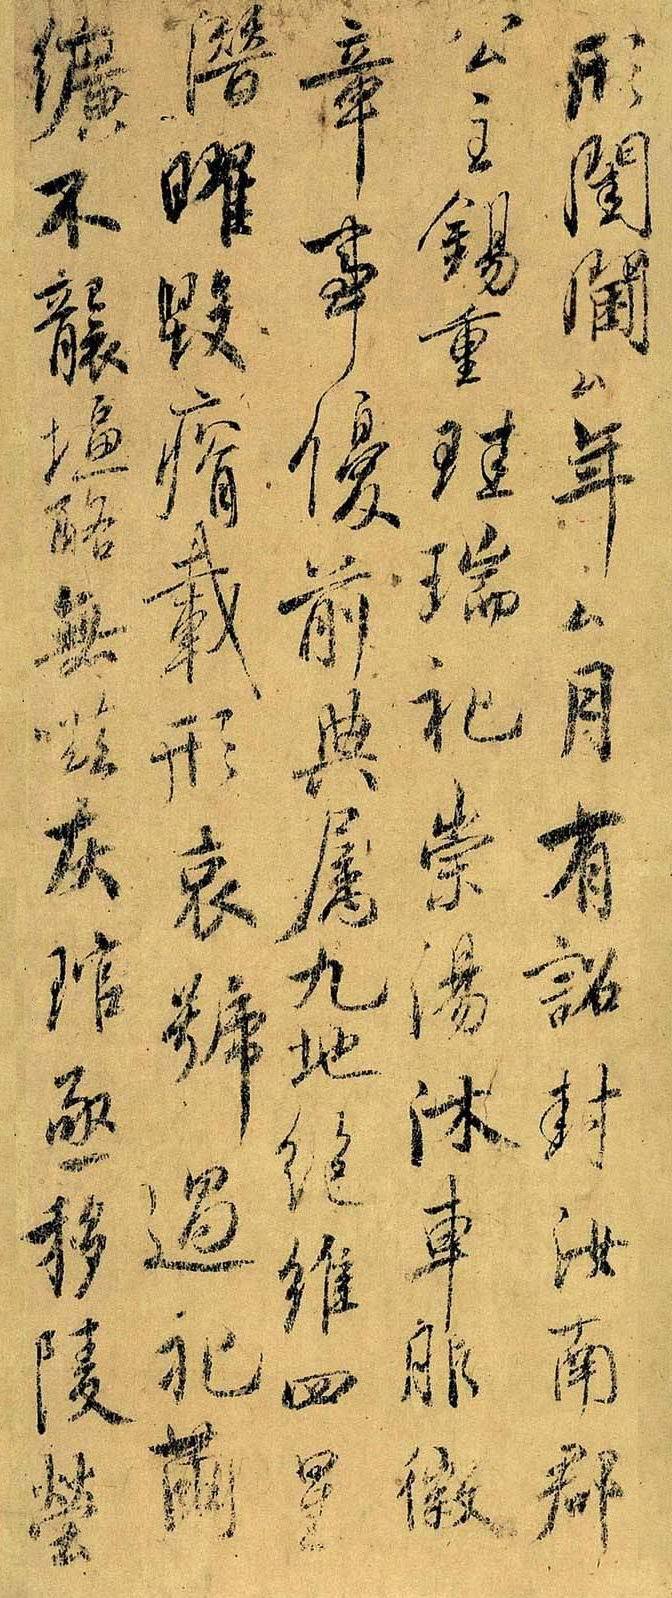 形閨閫厶年厶月有詔封汝南郡
公主錫重珪瑞祀崇湯沐車服徽
章事優前典屬九地絕維四星
潛曜毀瘠載形哀號過祀繭
纊不襲塩酪無嗞灰琯亟移陵塋